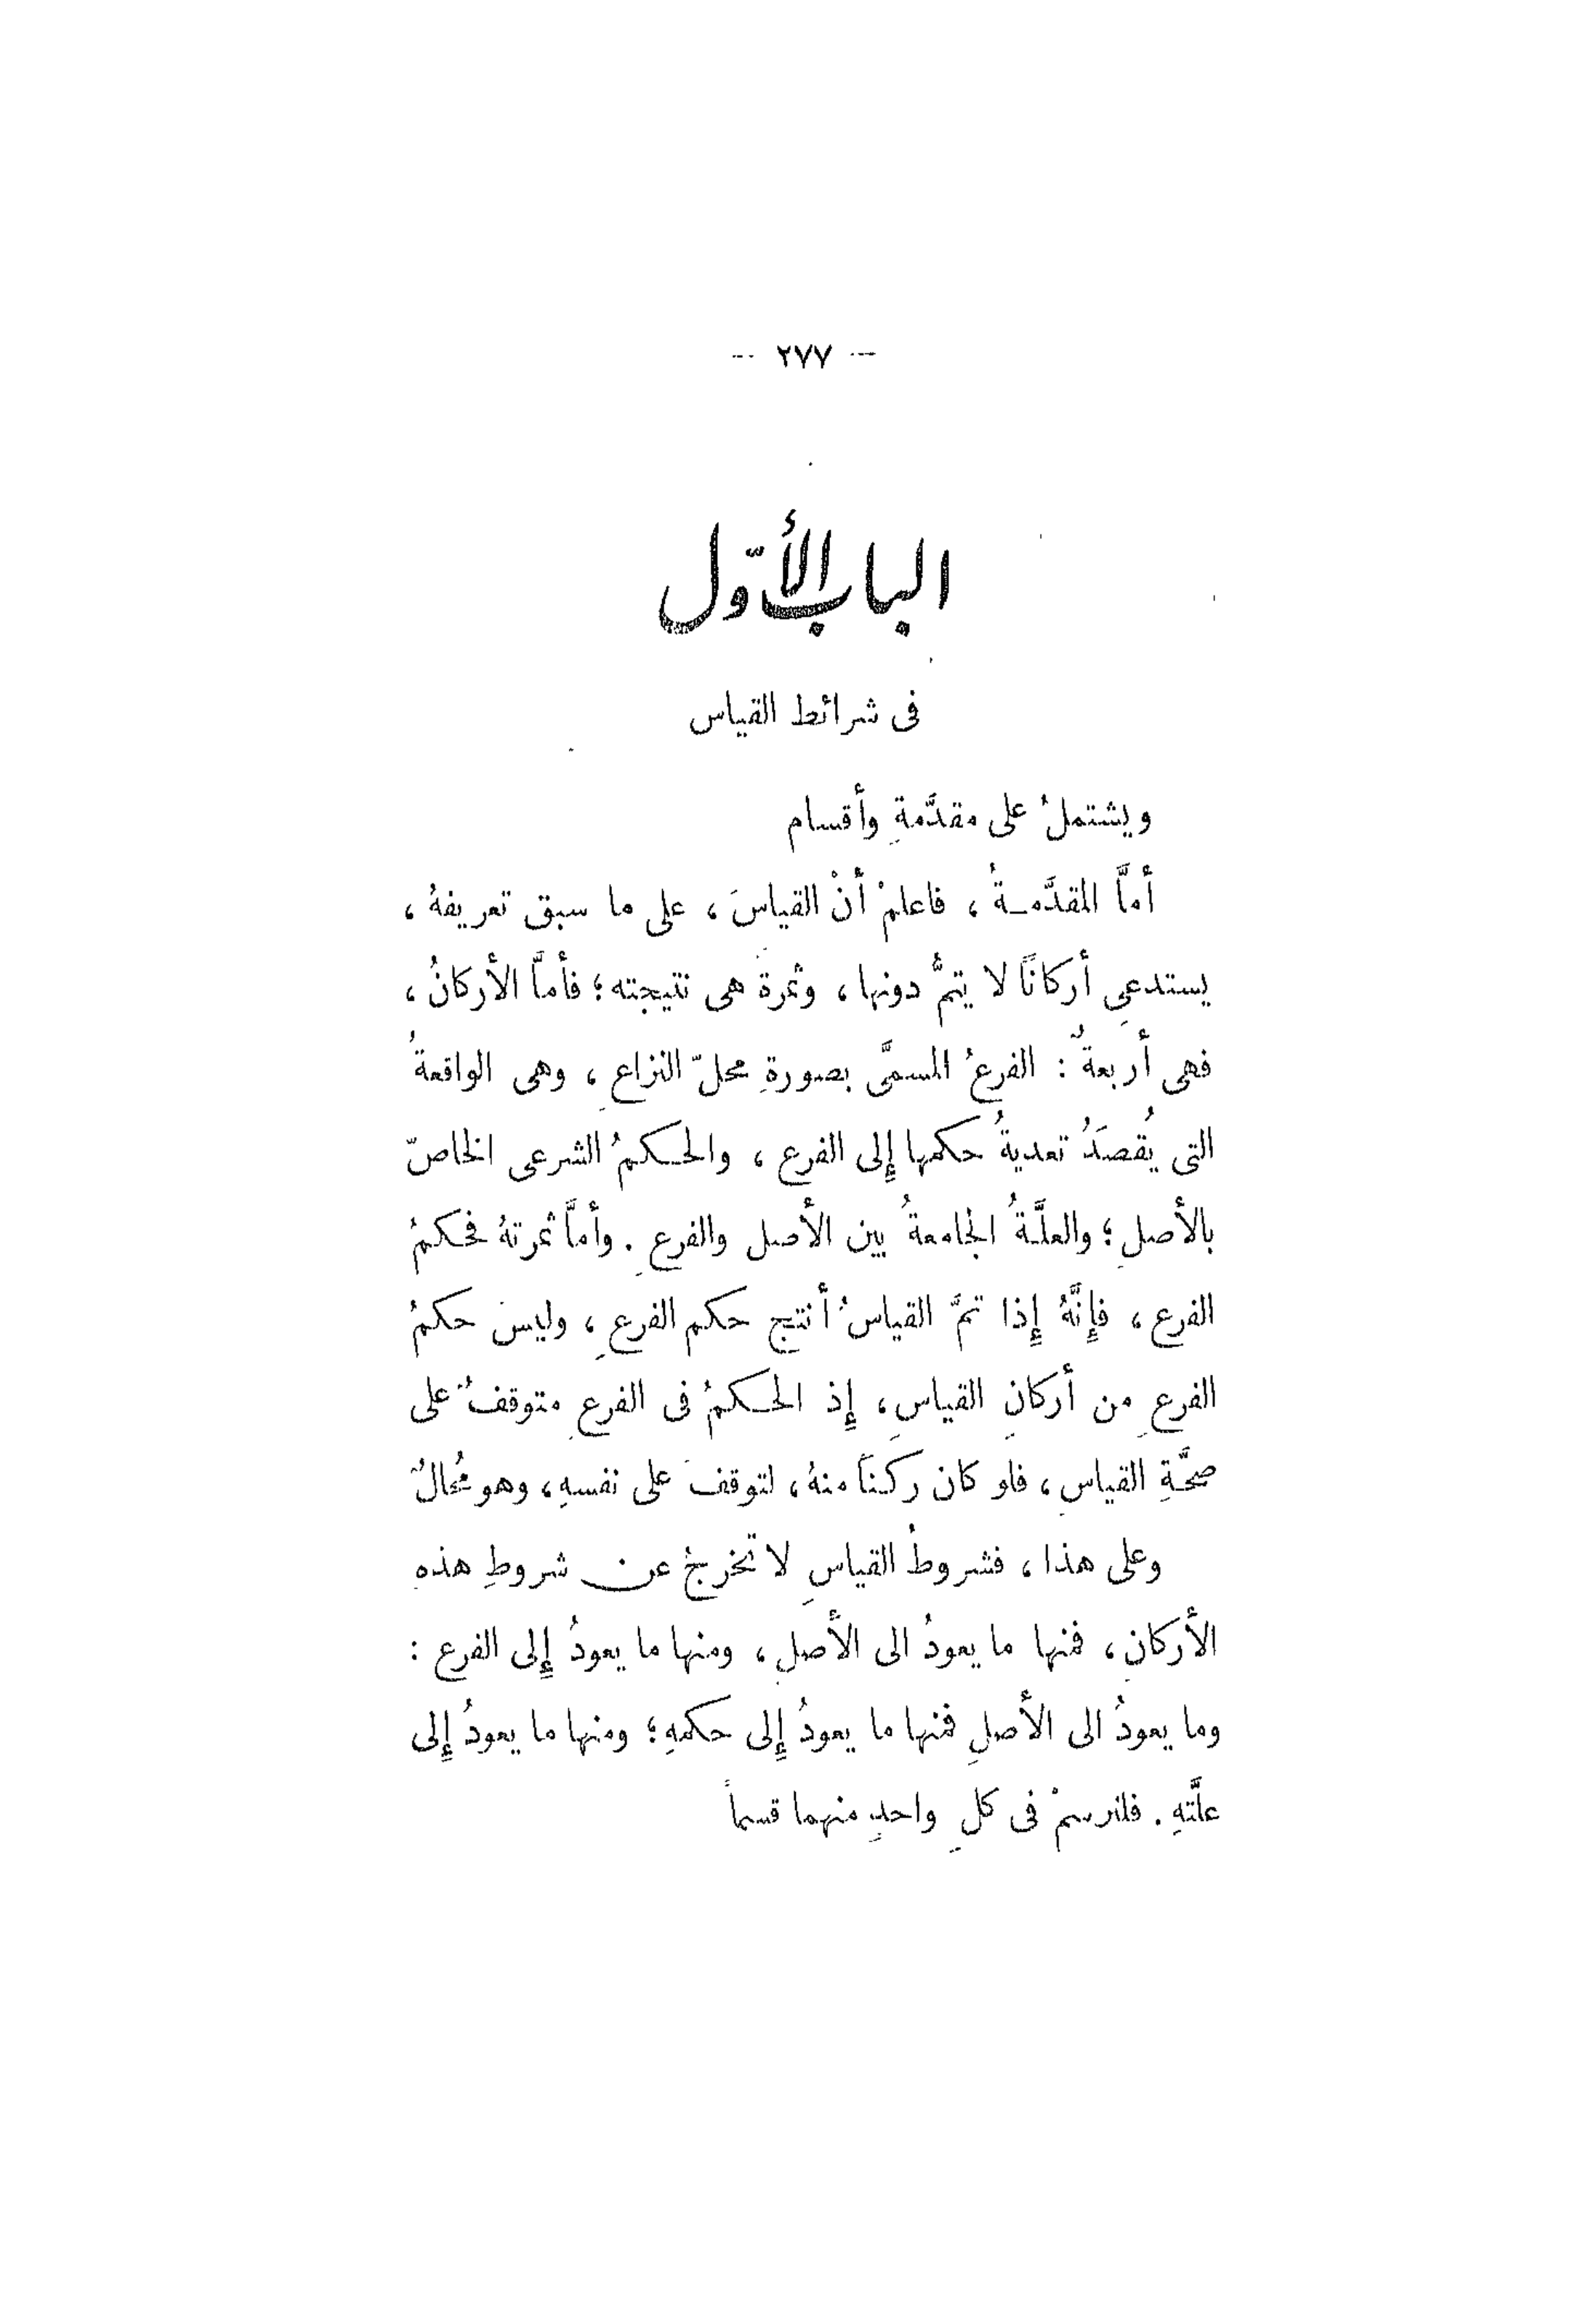 -- ٢٧٧ --
الباب الأوّل
فى شرائط القياس
ويشتملُ على مقدَّمةِ وأقسام
أمَّا المقدَّمـةُ ، فاعلمْ أنْ القياسَ ، على ما سبق تعريفهُ ،
يستدعى أركانًا لا يتمُّ دونها ، وثمرة هى نتيجته ؛ فأمَّا الأركانُ ،
فهى أربعةٌ : الفرعُ المسمَّى بصورةِ محلّ النزاعِ ، وهى الواقعةُ
التى يُقصَدُ تعديةُ حكمها إِلى الفرع ، والحـكمُ الشرعى الخاصّ
بالأصلِ ؛ والعلَّـةُ الجامعةُ بين الأصل والفرعِ . وأمَّا ثمرتهُ فحكمُ
الفرع ، فإِنَّهُ إِذا تمَّ القياسُ أنتج حكم الفرعِ ، وليسَ حكمُ
الفرعِ من أركانِ القياسِ ، إِذ الحـكمُ فى الفرعِ متوقفٌ على
صحَّـةِ القياسِ ، فلو كان ركـناً منهُ ، لتوقفَ على نفسهِ ، وهو مُحالٌ
وعلى هذا ، فشروطُ القياسِ لا تخرجُ عن شروطِ هذهِ
الأركانِ ، فمنها ما يعودُ الى الأصلِ ، ومنها ما يعودُ إِلى الفرع :
وما يعودُ الى الأصلِ فمنها ما يعودُ إِلى حكمهِ ؛ ومنها ما يعودُ إِلى
علَّتهِ . فلنرسمْ فى كلِ واحدٍ منهما قسماً